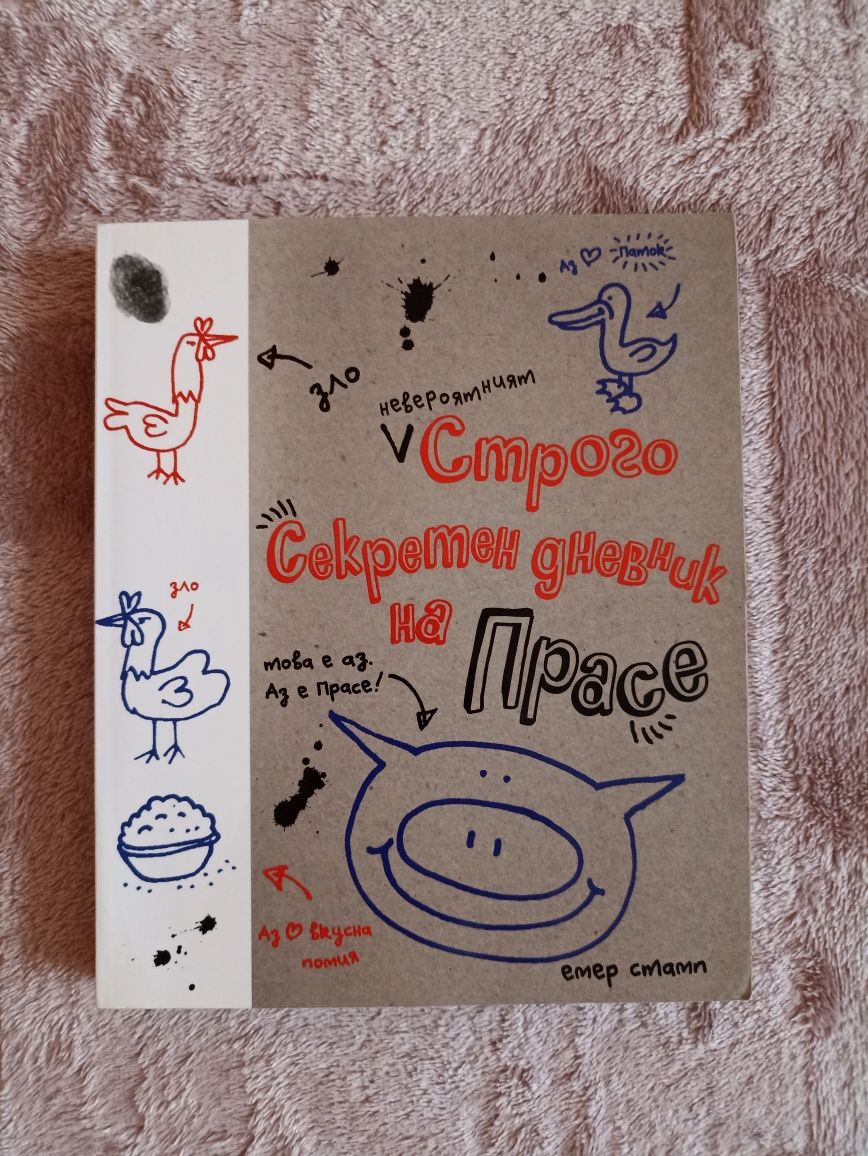 Аз ♡ Паток
зло
невероятният
Строго
Секретен дневник
на
Прасе
зло
това е аз.
Аз е Прасе!
Аз ♡ вкусна
помия
емер стамп